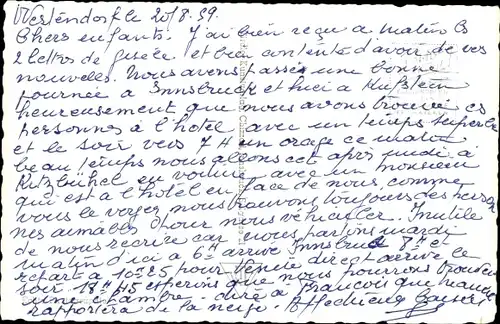 Westendorf le 20/8.59.
Chers enfants. J'ai bien reçu ce matin les
2 lettres de Gisèle et bien contente d'avoir de vos
nouvelles. Nous avons passée une bonne
journée a Innsbruck et hier a Kufstein
heureusement que nous avons trouvé ces
personnes a l'hotel avec un temps superbe
et le soir vers 7 H un orage ce matin
beau temps nous allons cet après midi à
Kitzbühel en voiture avec un monsieur
qui est a l'hotel en face de nous, comme
vous le voyez nous trouvons toujours des personnes
aimables pour nous véhiculer. Inutile
de nous recrire car nous partons mardi
matin d'ici a 6H arrivé Innsbruck 8H et
repart a 10H25 pour Venise direct arrivé le
soir 18H45 espérons que nous pourrons trouver
une chambre. dire à François que maman
rapportera de la neige. Affectueux baisers